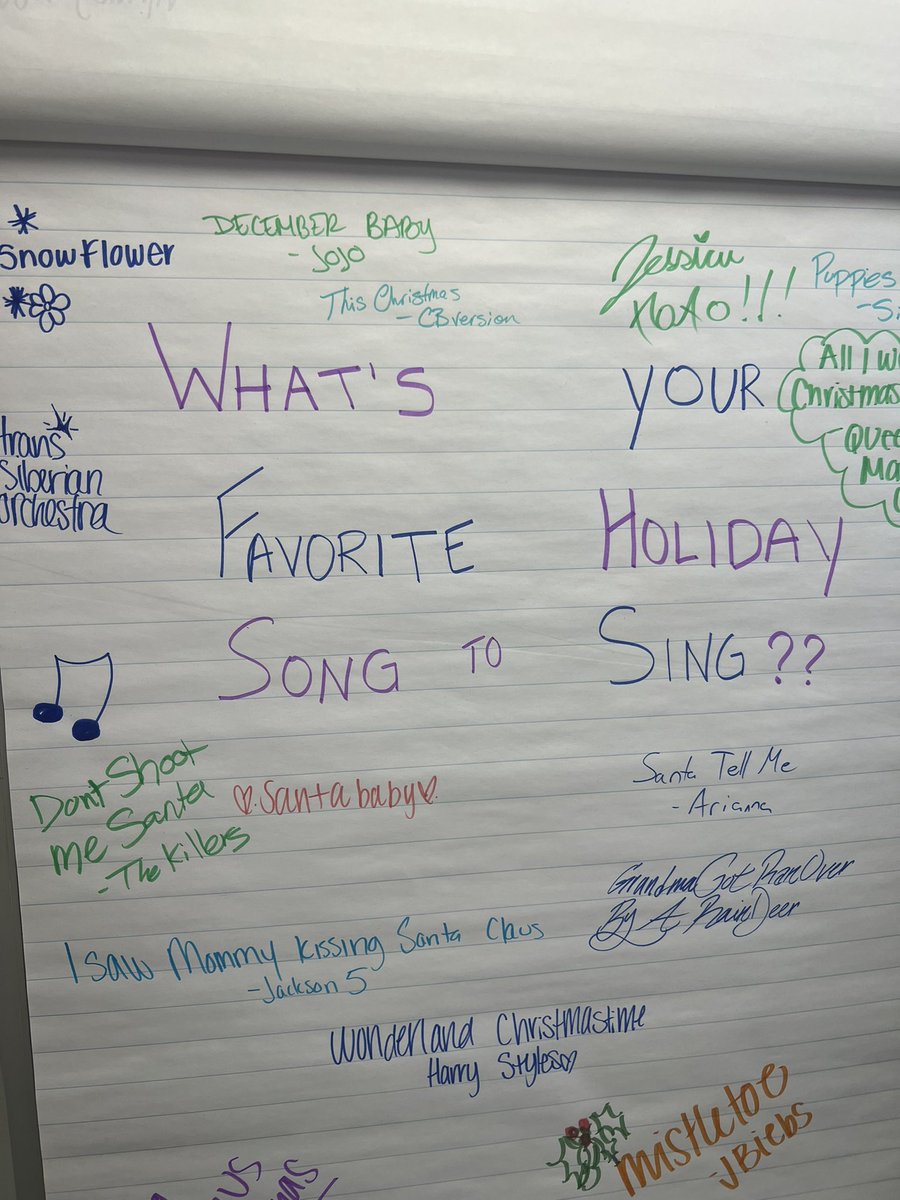 Snowflower
DECEMBER BABY
- JoJo
This Christmas
- CB version
Jessica
XoXo!!!
Puppies
- Si
WHAT'S YOUR
All I W
Christmas
QUEE
Ma
trans
Siberian
orchestra
FAVORITE HOLIDAY
SONG TO SING??
Dont Shoot
me Santa
- The Killers
Santa baby
Santa Tell Me
- Arianna
Grandma Got Ran Over
By A RainDeer
I saw Mommy kissing Santa Claus
- Jackson 5
Wonderland Christmastime
Harry Styles
mistletoe
- JBiebs